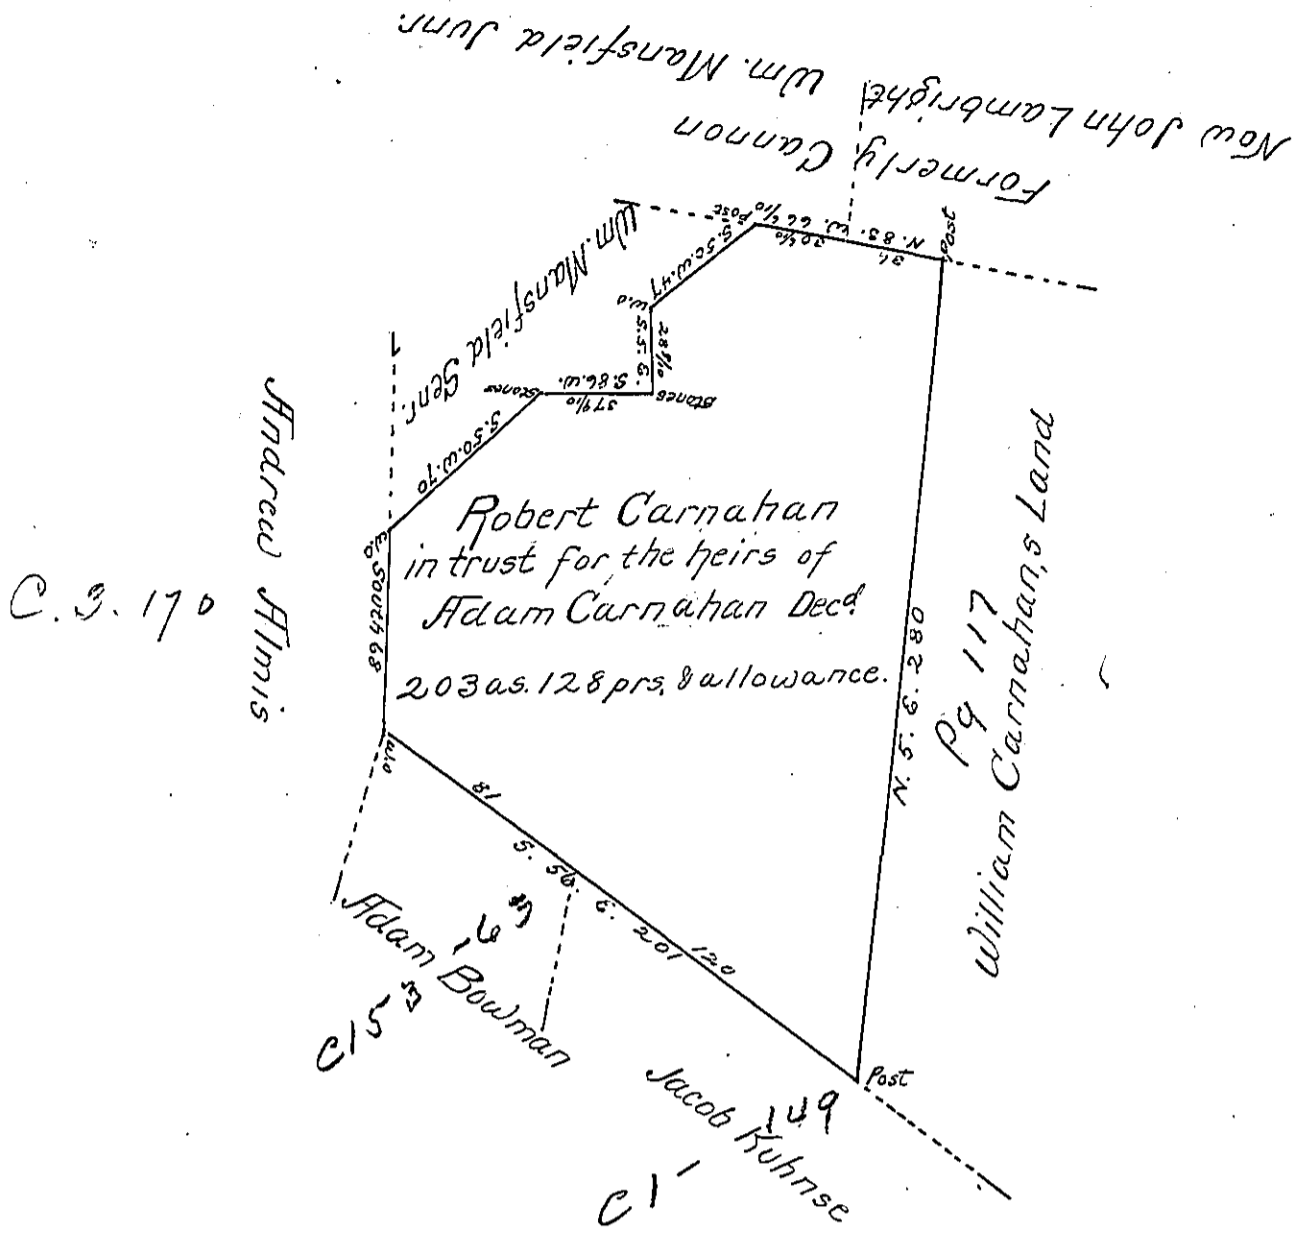 Now John Lambright
Wm. Mansfield Junr.
Formerly Cannon
Wm. Mansfield Senr.
Post
N. 83. W. 66 6/10
34
Post
S. 50. W. 47
W.O
S. 5. E.
28 8/10
Stones
S. 86. W.
37 9/10
Stones
S. 50. W. 70
W.O
South 68
W.O
Andrew Almis
C. 3. 170
Robert Carnahan
in trust for the heirs of
Adam Carnahan Decd.
203 as. 128 prs. & allowance.
N. 5. E. 280
Pg 117
William Carnahan,s Land
81
S. 56. E. 201
120
Post
Adam Bowman
Jacob Kuhnse
149